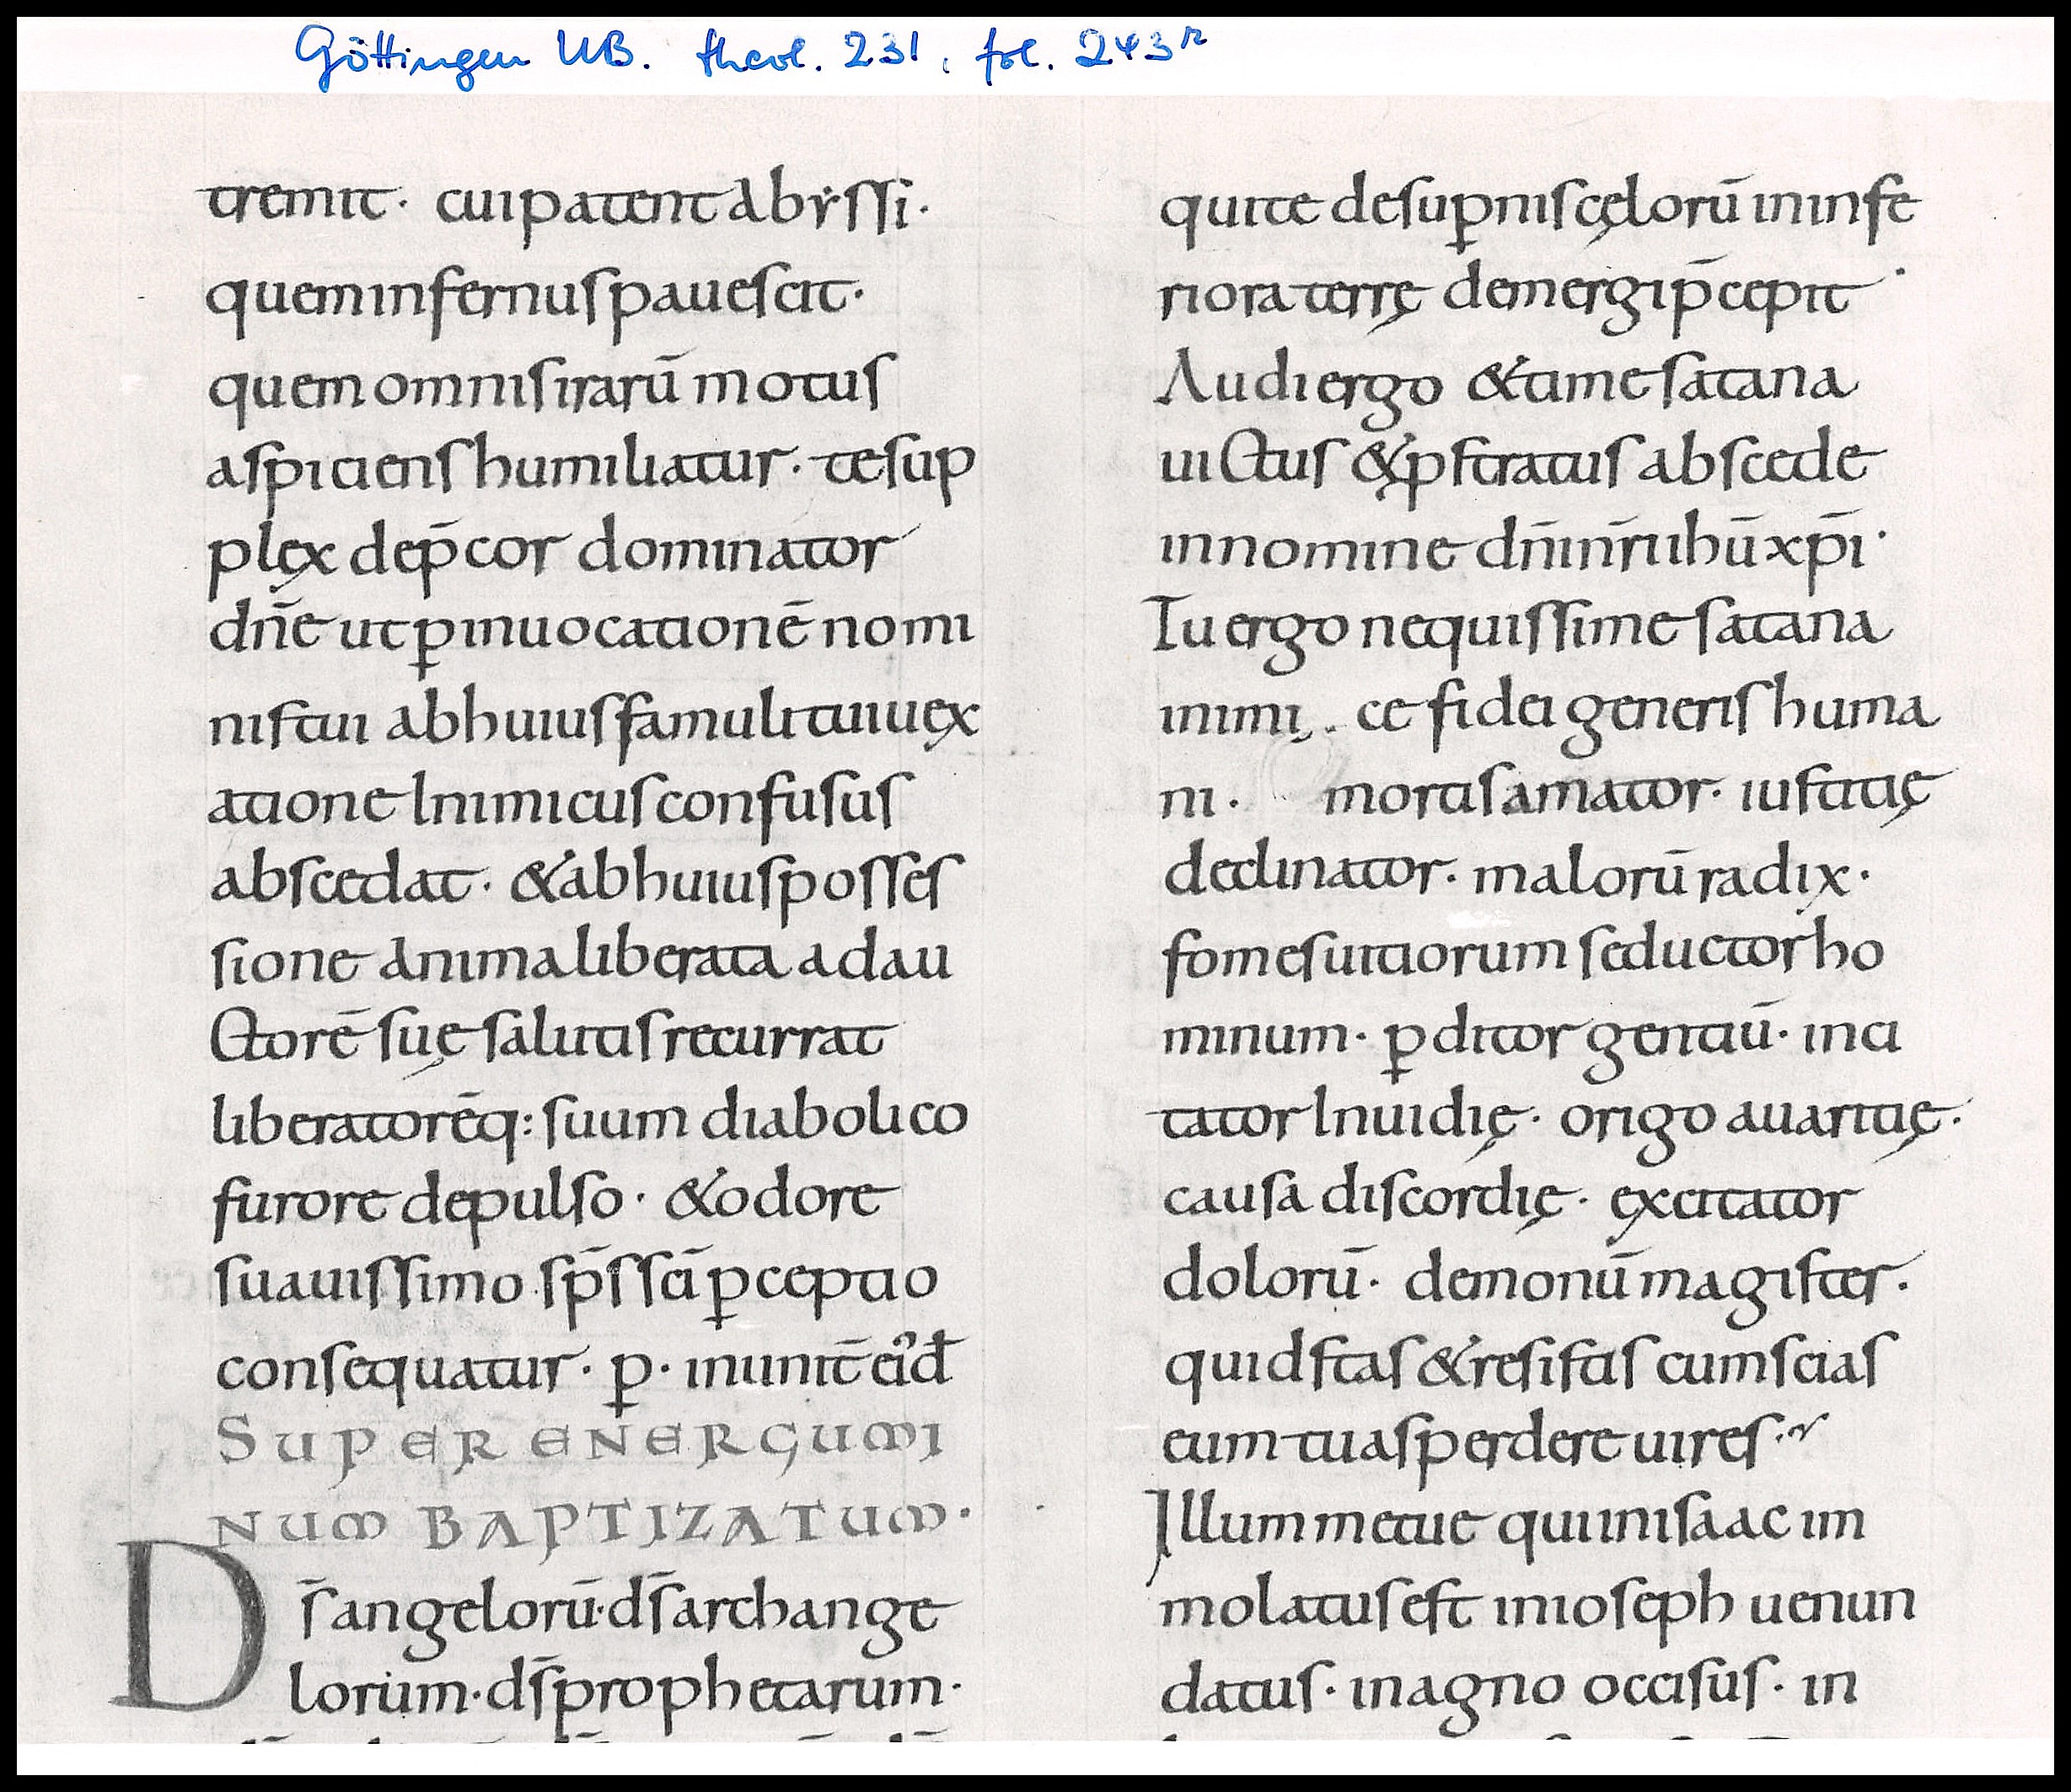 Göttingen UB. theol. 231, fol. 243r
tremit · cui patent abẏssi ·
quem infernus pauescit ·
quem omnis irarū motus
aspiciens humiliatur · te sup
plęx dep̄cor dominator
dn̄e ut ꝑ inuocationē nomi
nis tui ab huius famuli tui uęx
atione Inimicus confusus
abscedat · & ab huius posses
sione anima liberata ad au
ctorē suę salutis recurrat
liberatorēq: suum diabolico
furore depulso · & odore
suauissimo sp̄s sc̄i ꝑceptio
consequatur · ꝑ · in unit̄ eꝰd
SUPER ENERGUMI
NUM BAPTIZATUM ·
Ds̄ angelorū · ds̄ archange
lorum · ds̄ prophetarum ·
qui te de suꝑnis cęlorū in infe
riora terrę demergi p̄cepit ·
Audi ergo & time satana
uictus & ꝓstratus abscede
in nomine dn̄i nr̄i ihū xp̄i ·
Tu ergo nequissime satana
inimi ce fidei generis huma
ni · mortis amator · iustitię
declinator · malorū radix ·
fomes uitiorum seductor ho
minum · ꝑditor gentiū · inci
tator Inuidię · origo auaritię ·
causa discordię · ęxcitator
dolorū · demonū magister ·
quid stas & resistis cum scias
eum tuas perdere uires ·
Illum metue qui in isaac im
molatus est in ioseph uenun
datus · in agno occisus · in